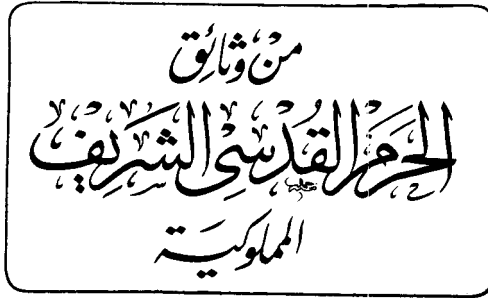 من وثائق
الحرم القدسي الشريف
المملوكية